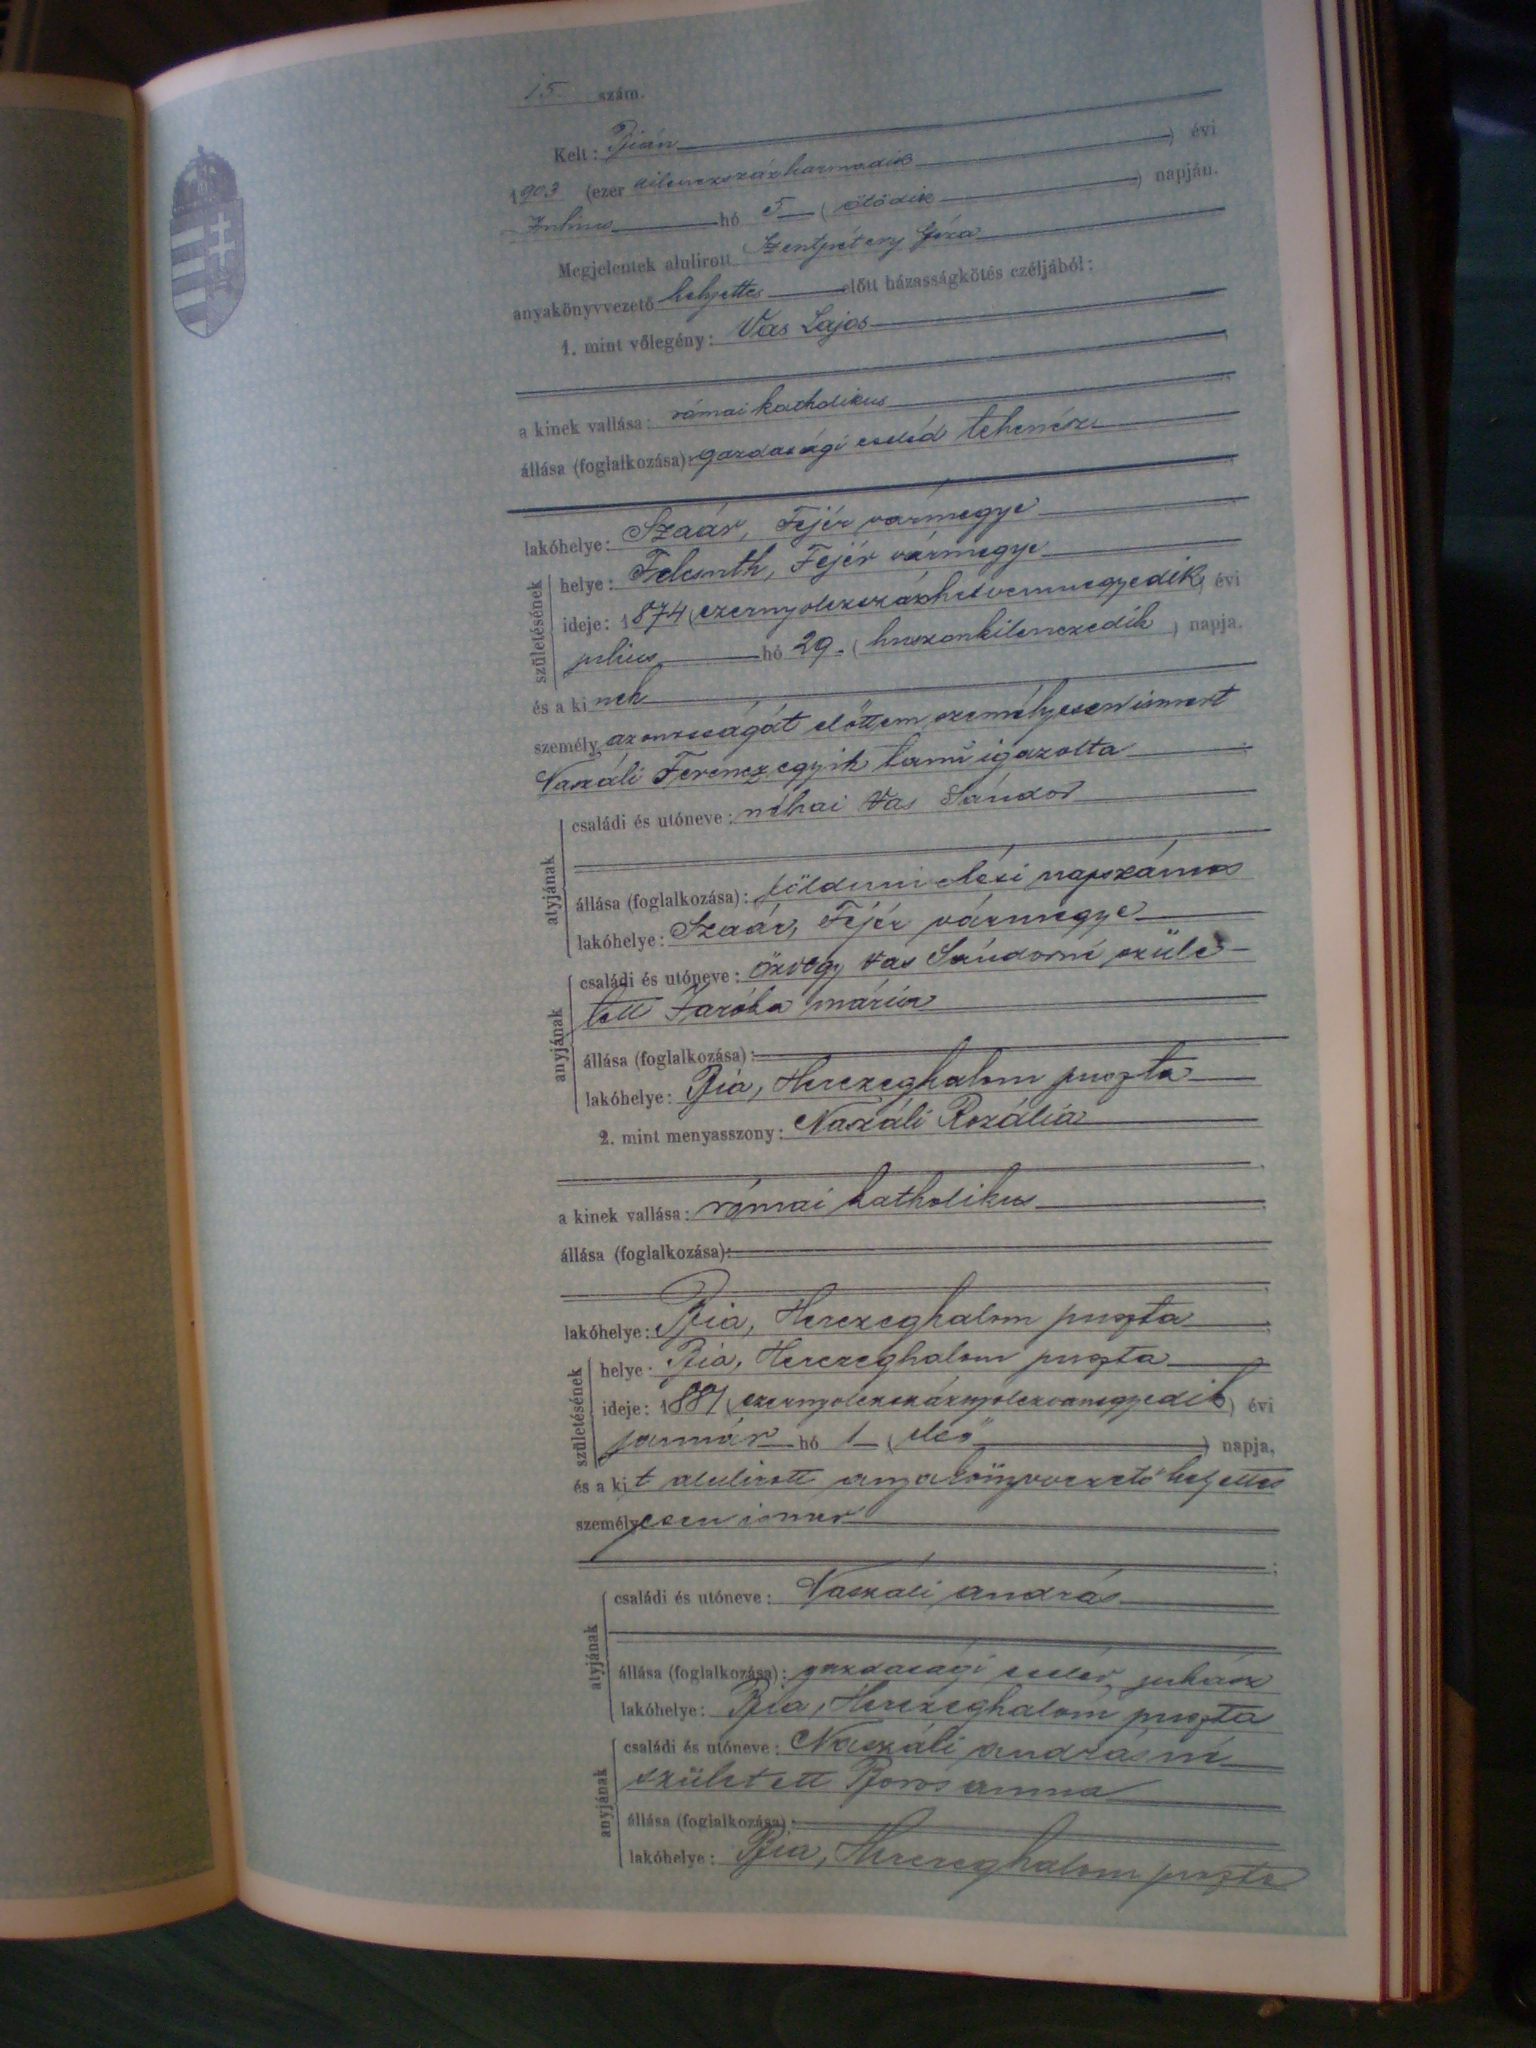 15 szám.
Kelt: Bián
1903 (ezer kilenczszázharmadik) évi
Julius hó 5 (ötödik) napján.
Megjelentek alulirott Szentpétery Géza
anyakönyvvezető helyettes előtt házasságkötés czéljából:
1. mint vőlegény: Vas Lajos
a kinek vallása: római katholikus
állása (foglalkozása): gazdasági cseléd tehenész
lakóhelye: Szaár, Fejér vármegye
születésének
helye: Felcsuth, Fejér vármegye
ideje: 1874 (ezernyolczszázhetvennegyedik) évi
julius hó 29. (huszonkilenczedik) napja.
és a kinek
személyazonosságát előttem személyesen ismert
Naszáli Ferencz egyik tanu igazolta
atyjának
családi és utóneve: néhai Vas Sándor
állása (foglalkozása): földmivelési napszámos
lakóhelye: Szaár, Fejér vármegye
anyjának
családi és utóneve: özvegy Vas Sándorné szüle-
tett Mária
állása (foglalkozása):
lakóhelye: Bia, Herczeghalom puszta
2. mint menyasszony: Naszáli Rozália
a kinek vallása: római katholikus
állása (foglalkozása):
lakóhelye: Bia, Herczeghalom puszta
születésének
helye: Bia, Herczeghalom puszta
ideje: 1881 (ezernyolczszáznyolczvanegyedik) évi
január hó 1 (első) napja,
és a kit alulirott anyakönyvvezető helyettes
személyesen ismer
atyjának
családi és utóneve: Naszáli András
állása (foglalkozása): gazdasági cseléd, juhász
lakóhelye: Bia, Herczeghalom puszta
anyjának
családi és utóneve: Naszáli Andrásné
született Boros Anna
állása (foglalkozása):
lakóhelye: Bia, Herczeghalom puszta